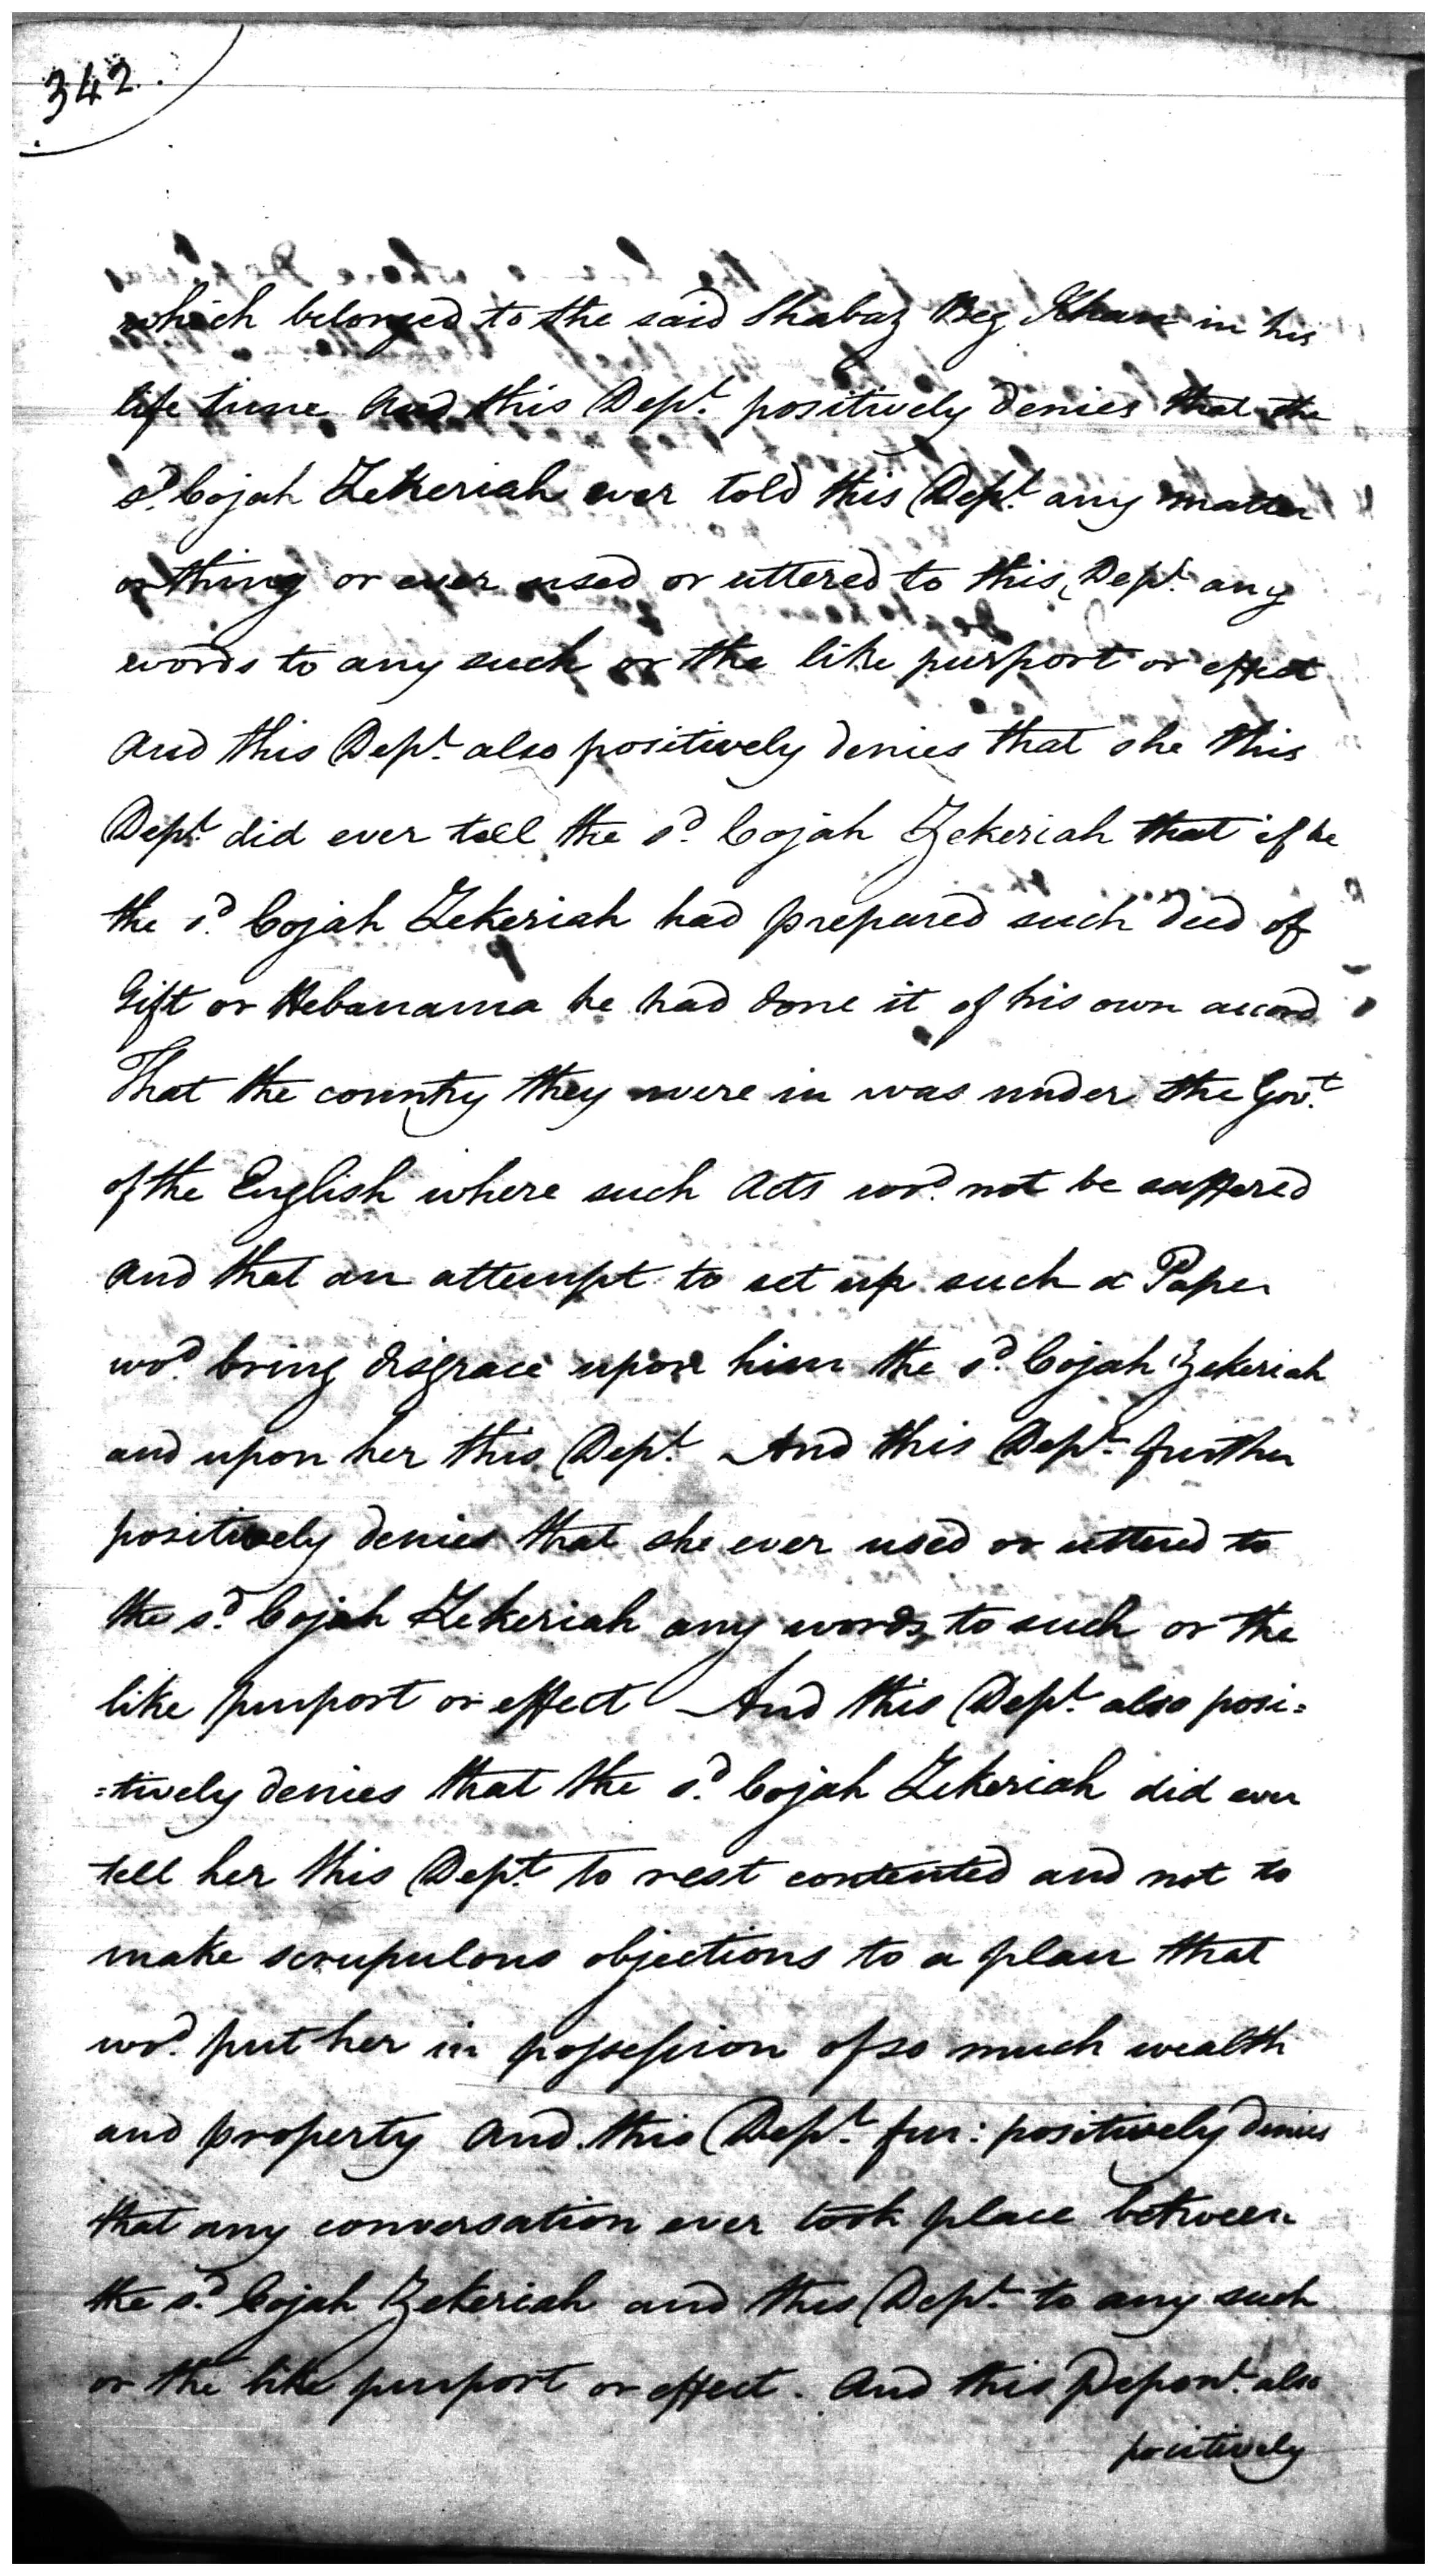 342.
which belonged to the said Shabaz Beg Khan in his
life time And this Dept. positively denies that the
sd. Cojah Zekeriah ever told this Dept. any matter
or thing or ever used or uttered to this Dept. any
words to any such or the like purport or effect
And this Dept. also positively denies that she this
Dept. did ever tell the sd. Cojah Zekeriah that if he
the sd. Cojah Zekeriah had prepared such deed of
Gift or Hebanama he had done it of his own accord
That the country they were in was under the Govt.
of the English where such Acts wod. not be suffered
and that an attempt to set up such a Paper
wod. bring disgrace upon him the sd. Cojah Zekeriah
and upon her this Dept. And this Dept. further
positively denies that she ever used or uttered to
the sd. Cojah Zekeriah any words to such or the
like purport or effect And this Dept. also posi=
=tively denies that the sd. Cojah Zekeriah did ever
tell her this Dept. to rest contented and not to
make scrupulous objections to a plan that
wod. put her in possession of so much wealth
and property And this Dept. fur: positively denies
that any conversation ever took place between
the sd. Cojah Zekeriah and this Dept. to any such
or the like purport or effect. And this Depont. also
positively